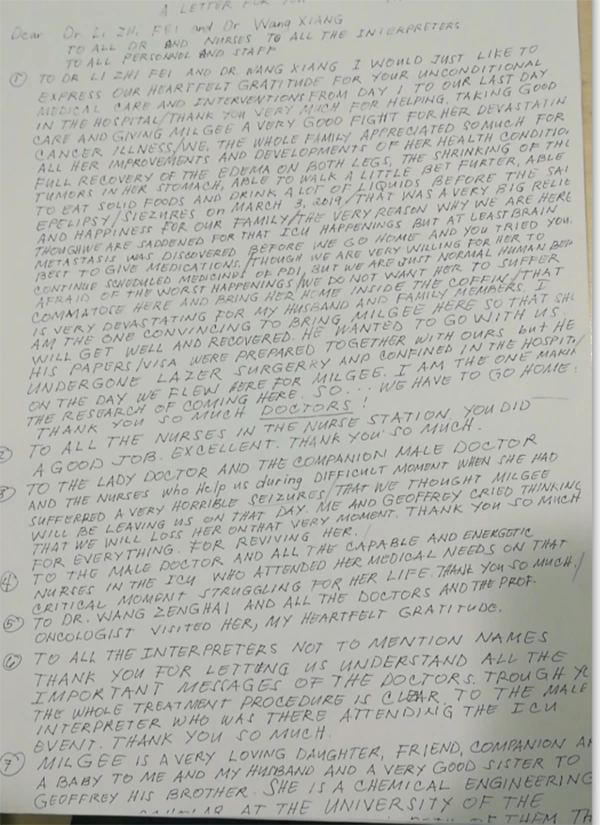 A LETTER FOR YOU
Dear Dr. Li ZHi FEI and Dr Wang XIANG
TO ALL DR AND NURSES TO ALL THE INTERPRETERS
TO ALL PERSONNEL AND STAFF
① TO DR LI ZHI FEI AND DR. WANG XIANG I WOULD JUST LIKE TO
EXPRESS OUR HEARTFELT GRATITUDE FOR YOUR UNCONDITIONAL
MEDICAL CARE AND INTERVENTIONS FROM DAY 1 TO OUR LAST DAY
IN THE HOSPITAL/THANK YOU VERY MUCH FOR HELPING, TAKING GOOD
CARE AND GIVING MILGEE A VERY GOOD FIGHT FOR HER DEVASTATIN
CANCER ILLNESS/WE, THE WHOLE FAMILY APPRECIATED SO MUCH FOR
ALL HER IMPROVEMENTS AND DEVELOPMENTS OF HER HEALTH CONDITIO
FULL RECOVERY OF THE EDEMA ON BOTH LEGS, THE SHRINKING OF THE
TUMORS IN HER STOMACH, ABLE TO WALK A LITTLE BET FURTER, ABLE
TO EAT SOLID FOODS AND DRINK A LOT OF LIQUIDS BEFORE THE SAI
EPELIPSY/SIEZURES on MARCH 3, 2019/THAT WAS A VERY BIG RELIE
AND HAPPINESS FOR OUR FAMILY/THE VERY REASON WHY WE ARE HERE
THOUGH WE ARE SADDENED FOR THAT ICU HAPPENINGS BUT AT LEAST BRAIN
METASTASIS WAS DISCOVERED BEFORE WE GO HOME AND YOU TRIED YOU
BEST TO GIVE MEDICATIONS/THOUGH WE ARE VERY WILLING FOR HER TO
CONTINUE SCHEDULED MEDICINES OF PDI, BUT WE ARE JUST NORMAL HUMAN BEIN
AFRAID OF THE WORST HAPPENINGS/WE DO NOT WANT HER TO SUFFER
COMMATOSE HERE AND BRING HER HOME INSIDE THE COFFIN/THAT
IS VERY DEVASTATING FOR MY HUSBAND AND FAMILY MEMBERS. I
AM THE ONE CONVINCING TO BRING MILGEE HERE SO THAT SHE
WILL GET WELL AND RECOVERED. HE WANTED TO GO WITH US,
HIS PAPERS/VISA WERE PREPARED TOGETHER WITH OURS but HE
UNDERGONE LAZER SURGERKY AND CONFINED IN THE HOSPITA
ON THE DAY WE FLEW HERE FOR MILGEE. I AM THE ONE MAKIN
THE RESEARCH OF COMING HERE. SO... WE HAVE TO GO HOME.
THANK YOU SO MUCH DOCTORS!
② TO ALL THE NURSES IN THE NURSE STATION, YOU DID
A GOOD JOB. EXCELLENT. THANK YOU SO MUCH.
③ TO THE LADY DOCTOR AND THE COMPANION MALE DOCTOR
AND THE NURSES who Help us during DIFFICULT MOMENT WHEN SHE HAD
SUFFERRED A VERY HORRIBLE SEIZURES/THAT WE THOUGHT MILGEE
WILL BE LEAVING US ON THAT DAY. ME AND GEOFFREY CRIED THINKING
THAT WE WILL LOSS HER ON THAT VERY MOMENT. THANK YOU SO MUCH
FOR EVERYTHING. FOR REVIVING HER.
④ TO THE MALE DOCTOR AND ALL THE CAPABLE AND ENERGETIC
NURSES IN THE ICU WHO ATTENDED HER MEDICAL NEEDS ON THAT
CRITICAL MOMENT STRUGGLING FOR HER LIFE. THANK YOU SO MUCH./
⑤ TO DR. WANG ZENGHAI AND ALL THE DOCTORS AND THE PROF.
ONCOLOGIST VISITED HER, MY HEARTFELT GRATITUDE.
⑥ TO ALL THE INTERPRETERS NOT TO MENTION NAMES
THANK YOU FOR LETTING US UNDERSTAND ALL THE
IMPORTANT MESSAGES OF THE DOCTORS. TROUGH YO
THE WHOLE TREATMENT PROCEDURE IS CLEAR. TO THE MALE
INTERPRETER WHO WAS THERE ATTENDING THE ICU
EVENT. THANK YOU SO MUCH.
⑦ MILGEE IS A VERY LOVING DAUGHTER, FRIEND, COMPANION A
A BABY TO ME AND MY HUSBAND AND A VERY GOOD SISTER TO
GEOFFREY HIS BROTHER. SHE IS A CHEMICAL ENGINEERING
AT THE UNIVERSITY OF THE
OF THEM TH